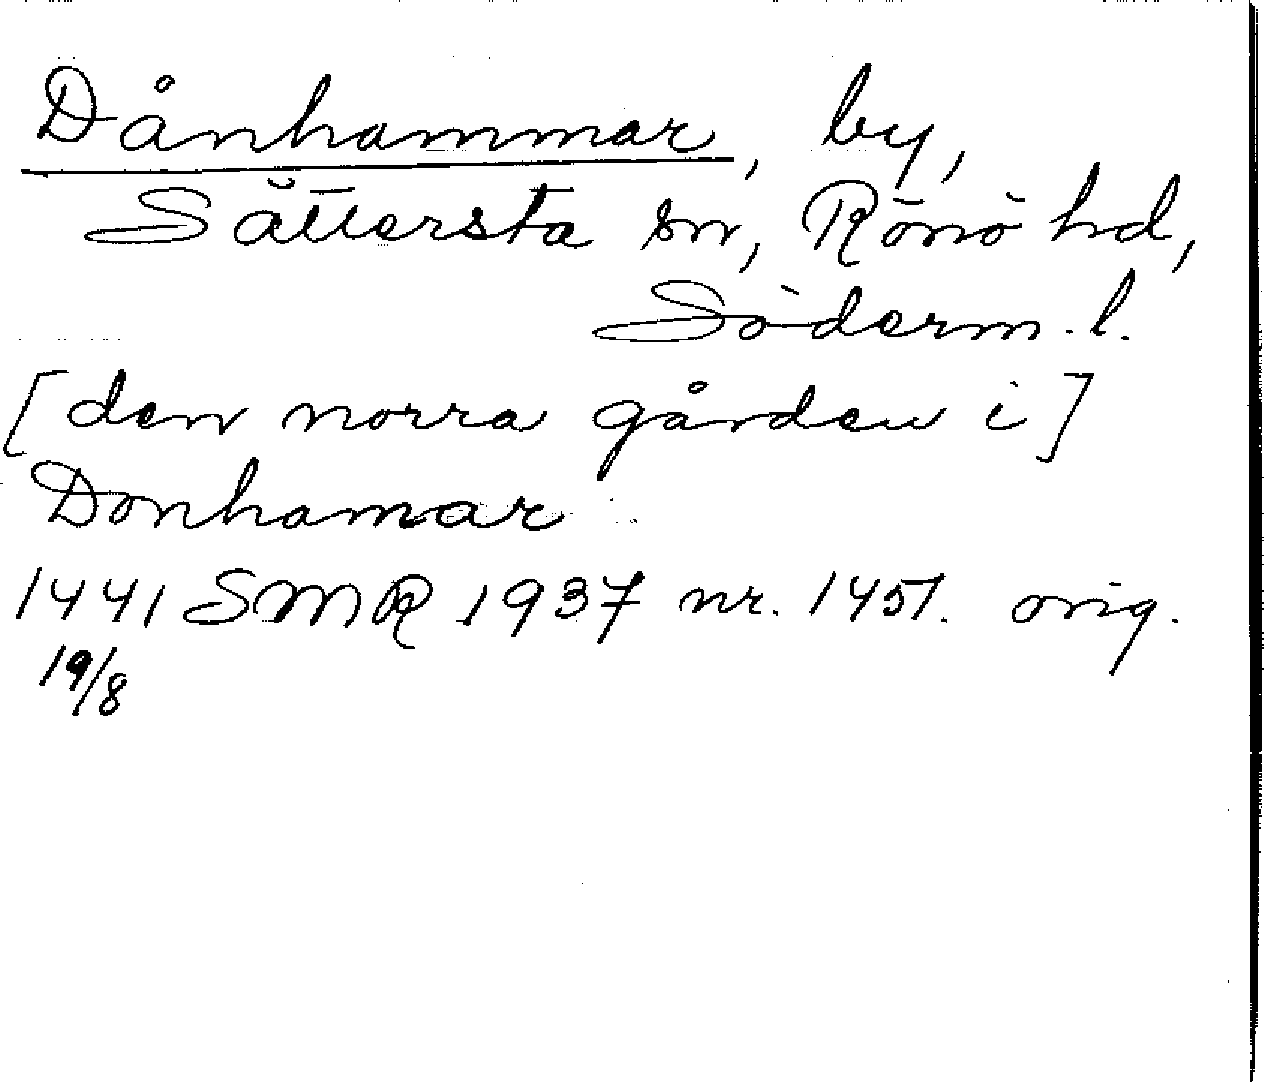 Dånhammar, by,
Sättersta sn, Rönö hd,
Söderm. l.
[den norra gården i]
Donhamar
1441 SMR 1937 nr. 1451. orig.
19/8